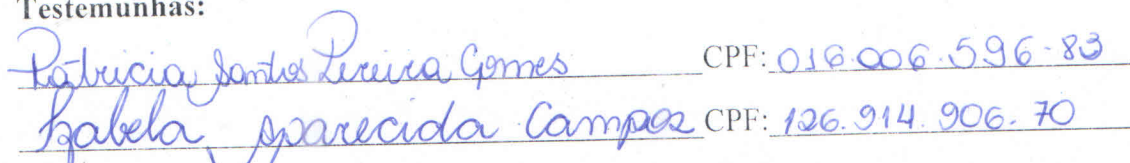 Testemunhas:
Patricia Santos Pereira Gomes CPF: 016.006.596-83
Izabela Aparecida Campos CPF: 126.914.906.70